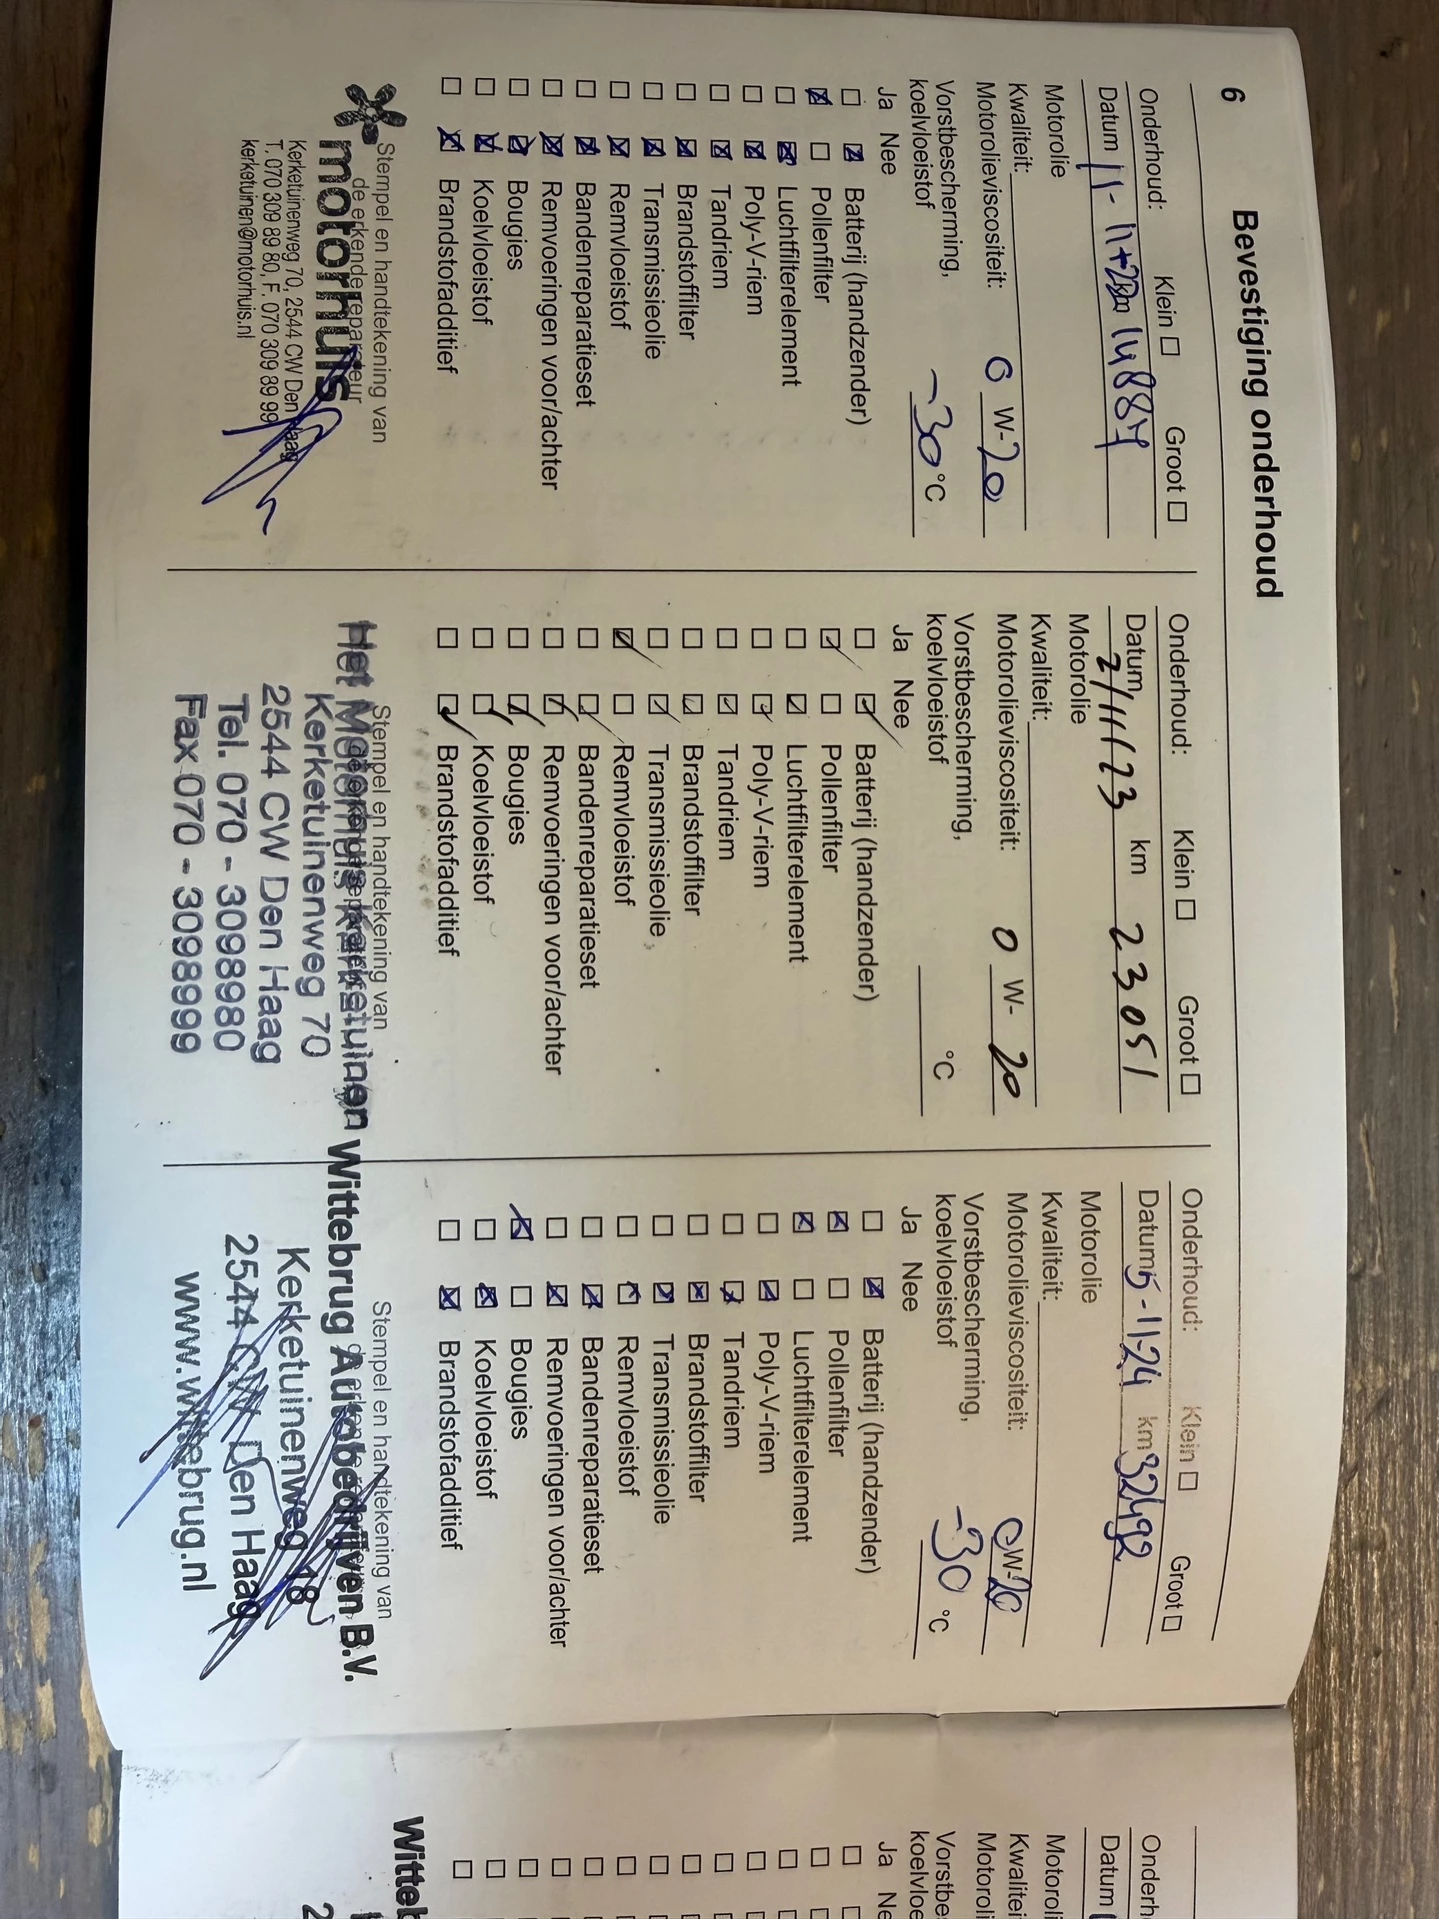 6
Bevestiging onderhoud
Onderhoud: Klein Groot
Datum 11-11-22 km 14887
Motorolie
Kwaliteit:
Motorolieviscositeit: 0 W-20
Vorstbescherming,
koelvloeistof -30 °C
Ja Nee
Batterij (handzender)
Pollenfilter
Luchtfilterelement
Poly-V-riem
Tandriem
Brandstoffilter
Transmissieolie
Remvloeistof
Bandenreparatieset
Remvoeringen voor/achter
Bougies
Koelvloeistof
Brandstofadditief
Stempel en handtekening van
de erkende reparateur
motorhuis
Kerketuinenweg 70, 2544 CW Den Haag
T. 070 309 89 80, F. 070 309 89 99
kerketuinen@motorhuis.nl
Onderhoud: Klein Groot
Datum 2/11/23 km 23051
Motorolie
Kwaliteit:
Motorolieviscositeit: 0 W- 20
Vorstbescherming,
koelvloeistof °C
Ja Nee
Batterij (handzender)
Pollenfilter
Luchtfilterelement
Poly-V-riem
Tandriem
Brandstoffilter
Transmissieolie
Remvloeistof
Bandenreparatieset
Remvoeringen voor/achter
Bougies
Koelvloeistof
Brandstofadditief
Stempel en handtekening van
de erkende reparateur
Het Motorhuis Kerketuinen
Kerketuinenweg 70
2544 CW Den Haag
Tel. 070 - 3098980
Fax 070 - 3098999
Onderhoud: Klein Groot
Datum 5-11-24 km 32492
Motorolie
Kwaliteit:
Motorolieviscositeit: 0W-20
Vorstbescherming,
koelvloeistof -30 °C
Ja Nee
Batterij (handzender)
Pollenfilter
Luchtfilterelement
Poly-V-riem
Tandriem
Brandstoffilter
Transmissieolie
Remvloeistof
Bandenreparatieset
Remvoeringen voor/achter
Bougies
Koelvloeistof
Brandstofadditief
Stempel en handtekening van
Wittebrug Autobedrijven B.V.
Kerketuinenweg 18
2544 CW Den Haag
www.wittebrug.nl
Onderh
Datum
Motoro
Kwalitei
Motoroli
Vorstbes
koelvloe
Ja Ne
Witteb
2